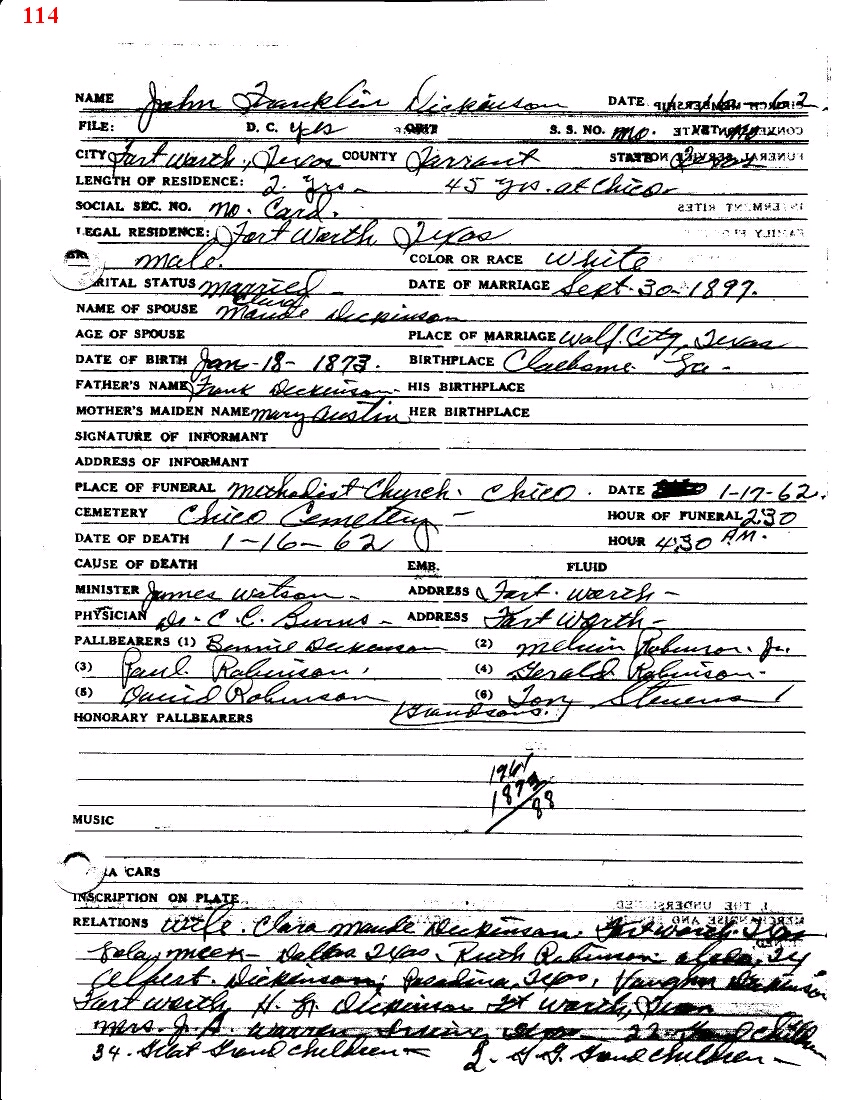 114
NAME John Franklin Dickinson DATE 62
FILE: D. C. yes S. S. NO. no.
CITY Fort Worth, Texas COUNTY Tarrant STATE Texas
LENGTH OF RESIDENCE: 2 yrs - 45 yrs. at Chico -
SOCIAL SEC. NO. no. Card. INTERMENT RITES
LEGAL RESIDENCE: Fort Worth Texas
male. COLOR OR RACE White
RITAL STATUS married - DATE OF MARRIAGE Sept. 30 - 1897.
Clara
NAME OF SPOUSE Maude Dickinson
AGE OF SPOUSE PLACE OF MARRIAGE Wolf City, Texas
DATE OF BIRTH Jan - 18 - 1873. BIRTHPLACE Ga -
FATHER'S NAME Frank Dickinson - HIS BIRTHPLACE
MOTHER'S MAIDEN NAME Mary Austin HER BIRTHPLACE
SIGNATURE OF INFORMANT
ADDRESS OF INFORMANT
PLACE OF FUNERAL Methodist Church. Chico. DATE 1-17-62.
CEMETERY Chico Cemetery - HOUR OF FUNERAL 2:30
DATE OF DEATH 1-16-62 HOUR 4:30 A.M.
CAUSE OF DEATH EMB. FLUID
MINISTER James Watson - ADDRESS Fort. Worth -
PHYSICIAN Dr. C. C. Burns - ADDRESS Fort Worth -
PALLBEARERS (1) Bennie Dickinson (2) Melvin Robinson. Jr.
(3) Paul Robinson, (4) Gerald Robinson -
(5) David Robinson (6) Tony Stevens
HONORARY PALLBEARERS (Grandsons.)
1961
1873
88
MUSIC
A CARS
INSCRIPTION ON PLATE
RELATIONS Wife. Clara Maude Dickinson. Fort Worth. Texas
Meek - Dallas Texas. Ruth Robinson
Albert. Dickinson; Pasadena, Texas, Vaughn Dickinson
Fort Worth, Dickinson Ft Worth, Texas
Mrs. J. A. Warren 22 Grand Children
34. Great Grand Children - 2. G. G. Grand Children -